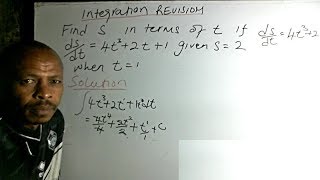 Integration REVISION
Find S in terms of t if
ds/dt = 4t³+2t+1 given s=2
ds/dt = 4t³+2
when t=1
Solution
∫4t³+2t+1 dt
= 4t⁴/4 + 2t²/2 + t¹/1 + C